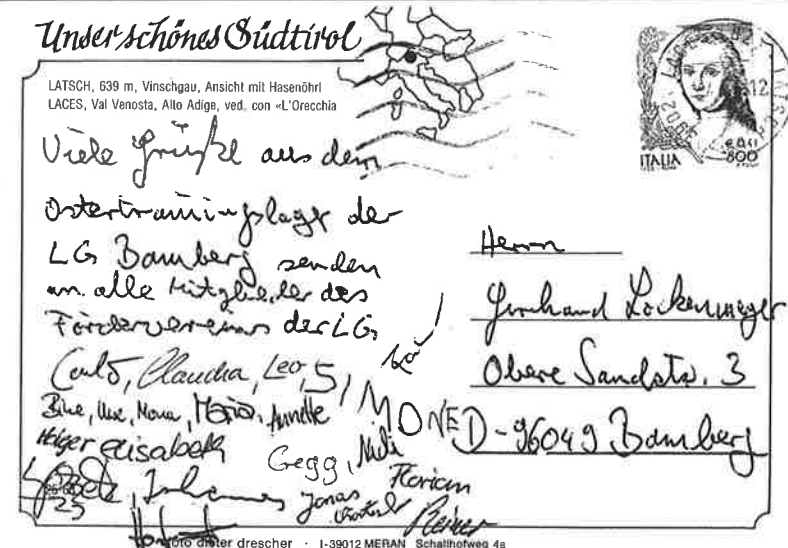 Unser schönes Südtirol
LATSCH, 639 m, Vinschgau, Ansicht mit Hasenöhrl
LACES, Val Venosta, Alto Adige, ved. con «L'Orecchia
ITALIA
€ 0,41
800
Viele Grüße aus dem
Ostertrainingslager der
LG Bamberg senden
an alle Mitglieder des
Fördervereins der LG
Claudia, Leo, SIMONE
Uwe, Mona, Mario, Annette
Holger Elisabeth
Gegg, Niki
Johannes
Jonas
Florian
Reiner
Herrn
Gerhard Lockenmeyer
Obere Sandstr. 3
D-96049 Bamberg
foto dieter drescher · I-39012 MERAN Schallhofweg 4a